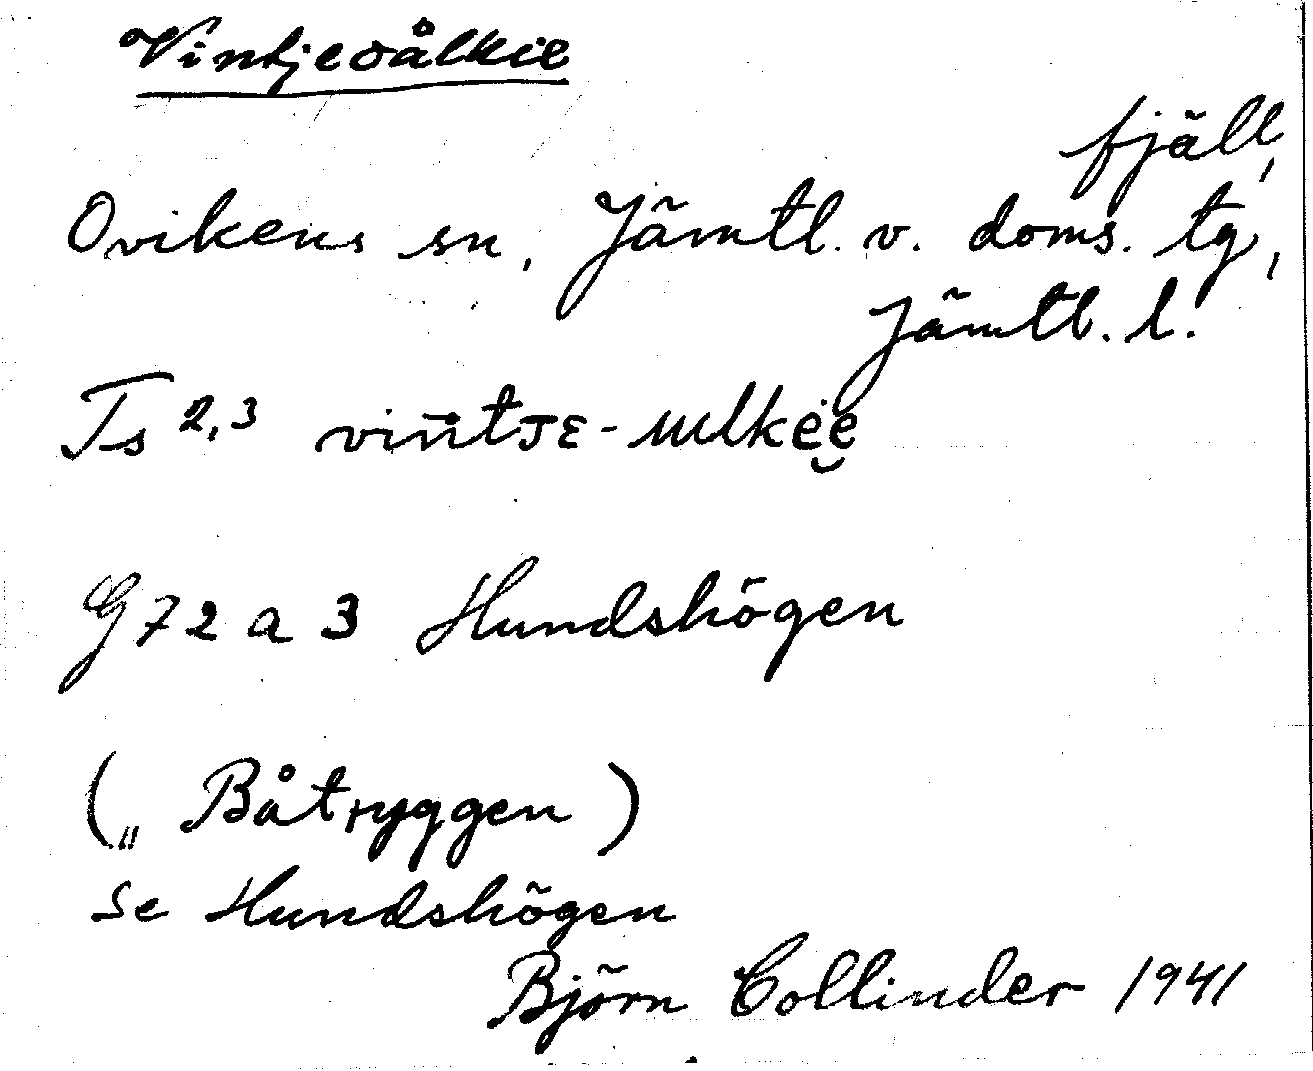 Vintjeoålkie
fjäll,
Ovikens sn, Jämtl. v. doms. tg,
Jämtl. l.
Ts 2,3
G 72 a 3 Hundshögen
(„ Båtryggen)
Se Hundshögen
Björn Collinder 1941